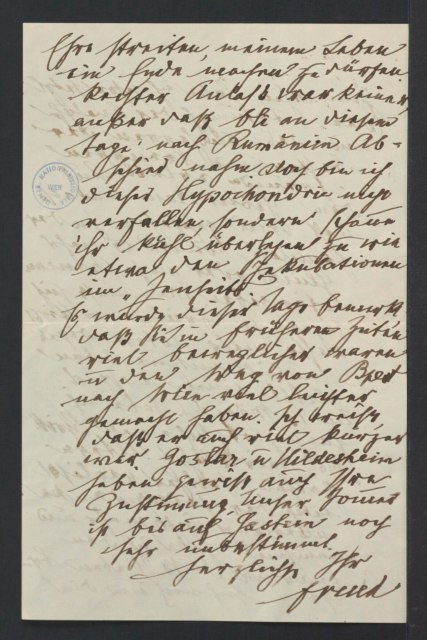 Ehre streiten, meinem Leben
ein Ende machen zu dürfen
Rechter Anlaß war keiner
außer daß Oli an diesem
Tage nach Rumänien Ab-
schied nahm. Doch bin ich
dieser Hypochondrie nicht
verfallen, sondern schaue
ihr kühl überlegen zu, wie
etwa den Spekulationen
im „Jenseits“.
Es wurde dieser Tage bemerkt
daß Sie in früheren Zeiten
viel beweglicher waren
u den Weg von Bpest
nach Wien viel leichter
gemacht haben. Ich weiß,
daß er auch viel kürzer
war. Goslar u Hildesheim
haben gewiß auch Ihre
Zustimmung. Unser Sommer
ist bis auf Gastein noch
sehr unbestimmt.
Herzlichst Ihr
Freud
WIEN